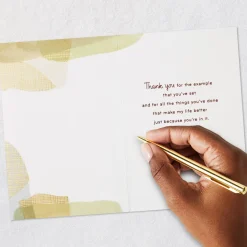 Thank you for the example
that you've set
and for all the things you've done
that make my life better
just because you're in it.